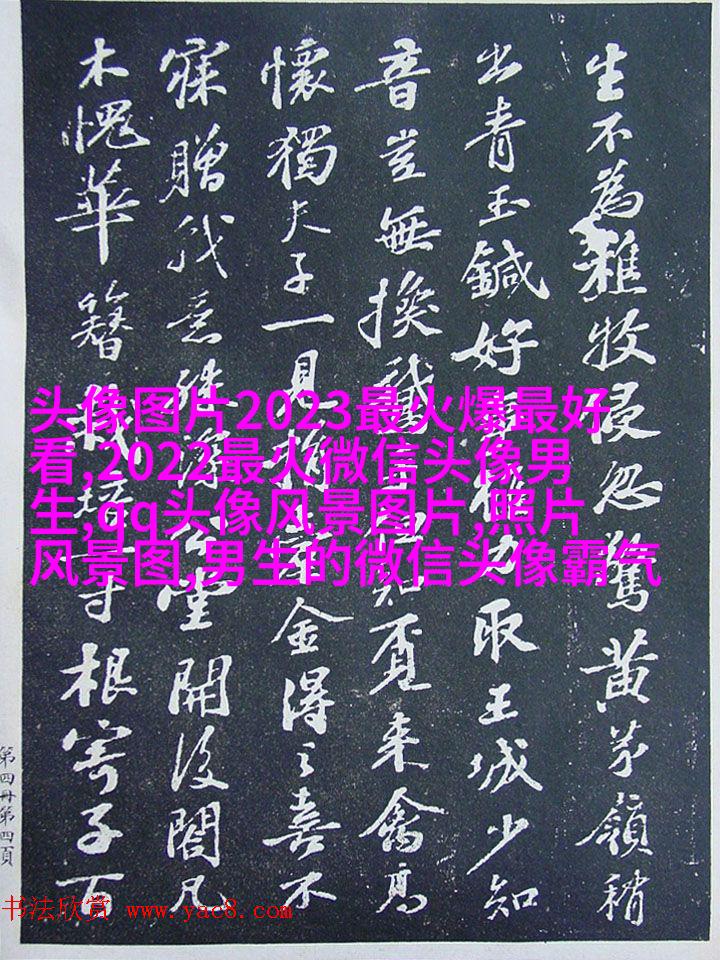 生不為樵牧侵忽驚黃茅領稍
出青玉鍼好力取王城少知
音豈無換知覓來禽高
懷獨夫子一見捐金得之喜不
寐贈我意深公堂開後閣凡
木愧華簪栽培一寸根寄子百
头像图片2023最火爆最好
看,2022最火微信头像男
生,qq头像风景图片,照片
风景图,男生的微信头像霸气
第四册第四頁
书法欣赏 www.yac8.com